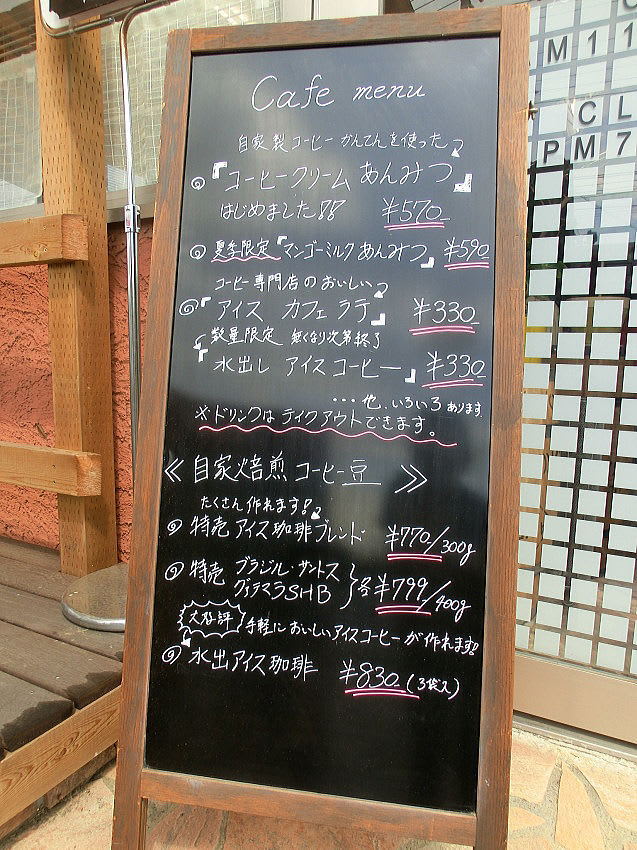 Cafe menu
自家製コーヒーかんてんを使った
『コーヒークリームあんみつ』
はじめました!! ¥570
夏季限定『マンゴーミルクあんみつ』 ¥590
コーヒー専門店のおいしい
『アイス カフェラテ』 ¥330
数量限定 無くなり次第終了
『水出し アイスコーヒー』 ¥330
…他、いろいろあります
※ドリンクはテイクアウトできます。
≪自家焙煎コーヒー豆≫
たくさん作れます!
特売アイス珈琲ブレンド ¥770/300g
特売 ブラジル・サントス
グァテマラSHB }各¥799/400g
大好評 手軽においしいアイスコーヒーが作れます!!
水出アイス珈琲 ¥830-(3袋入)
AM11
CL
PM7